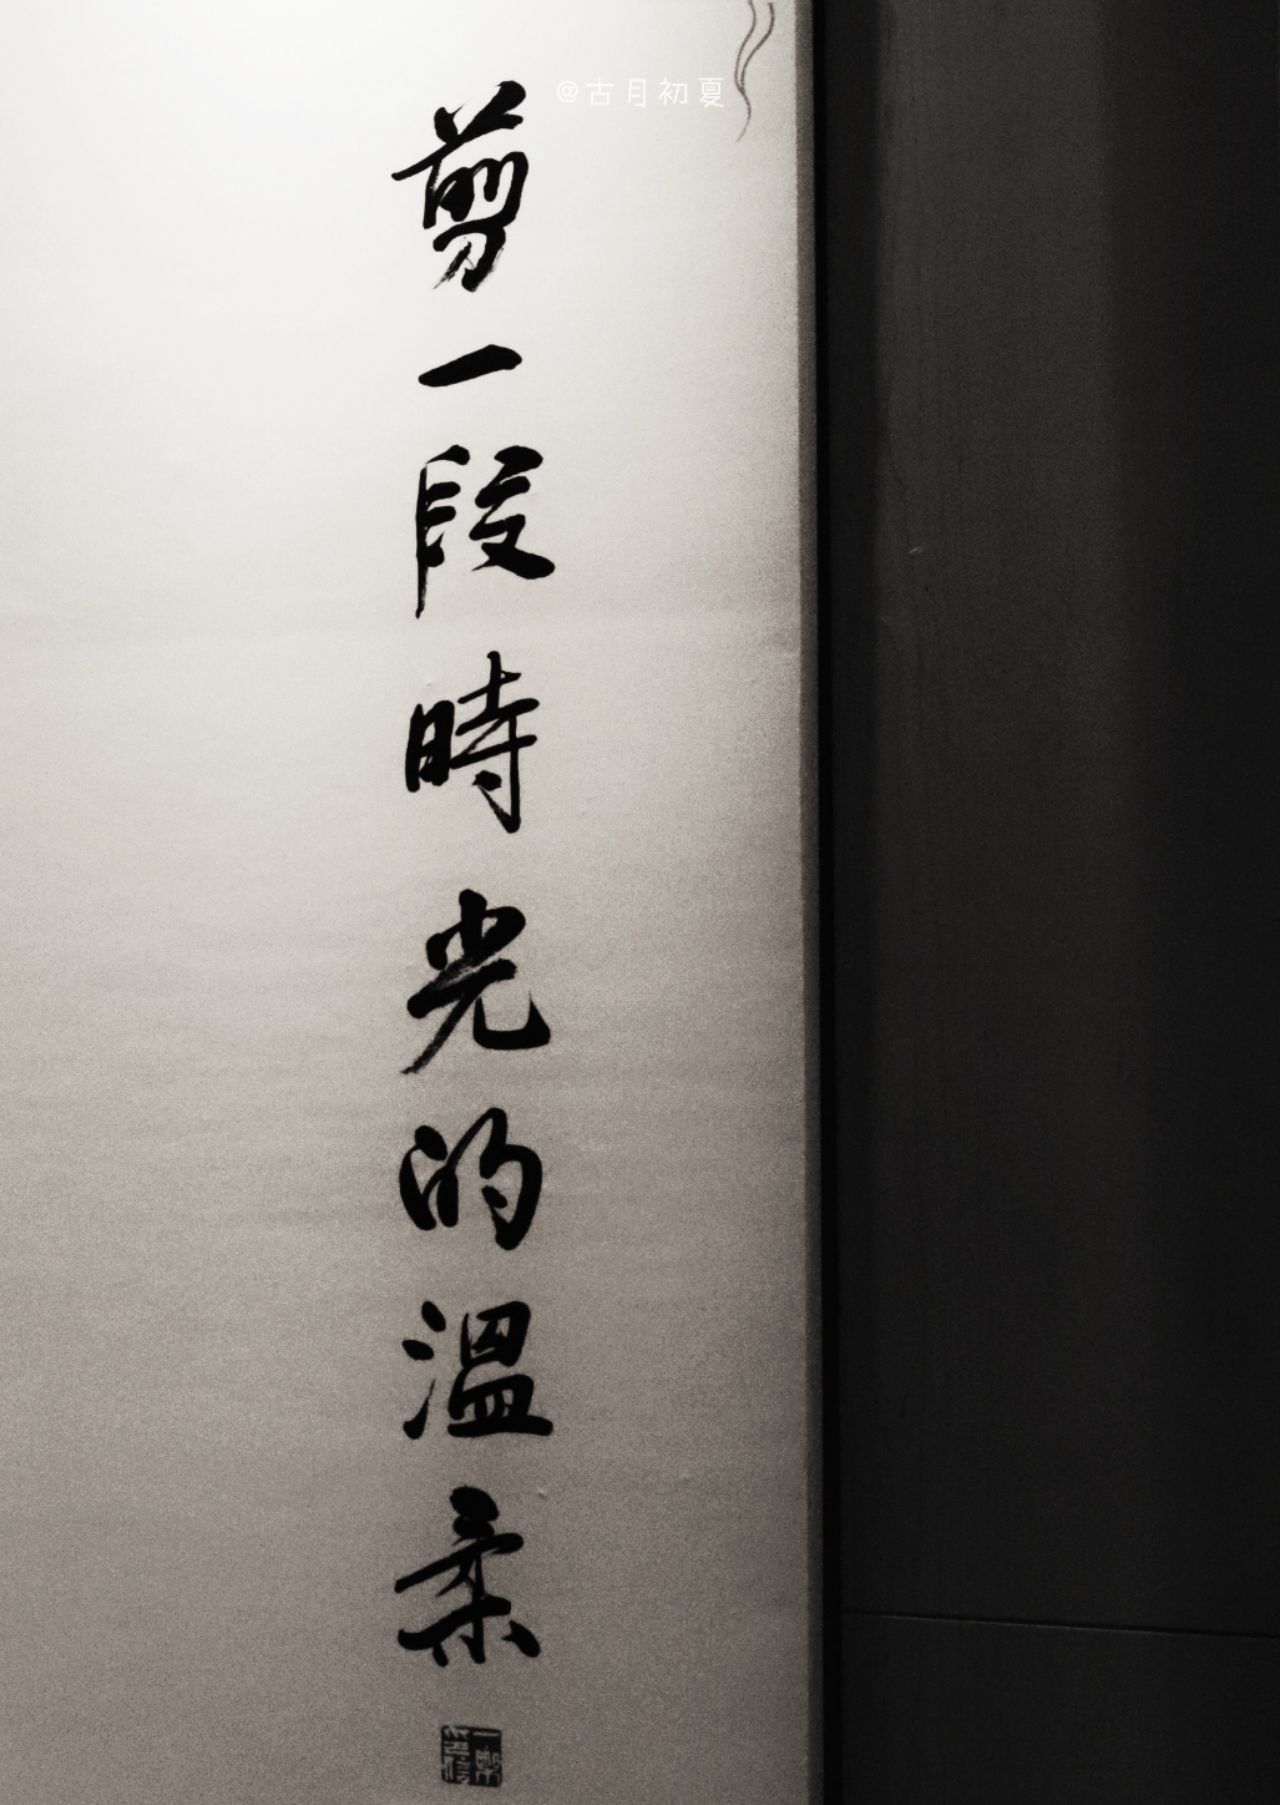 @古月初夏
剪一段時光的溫柔